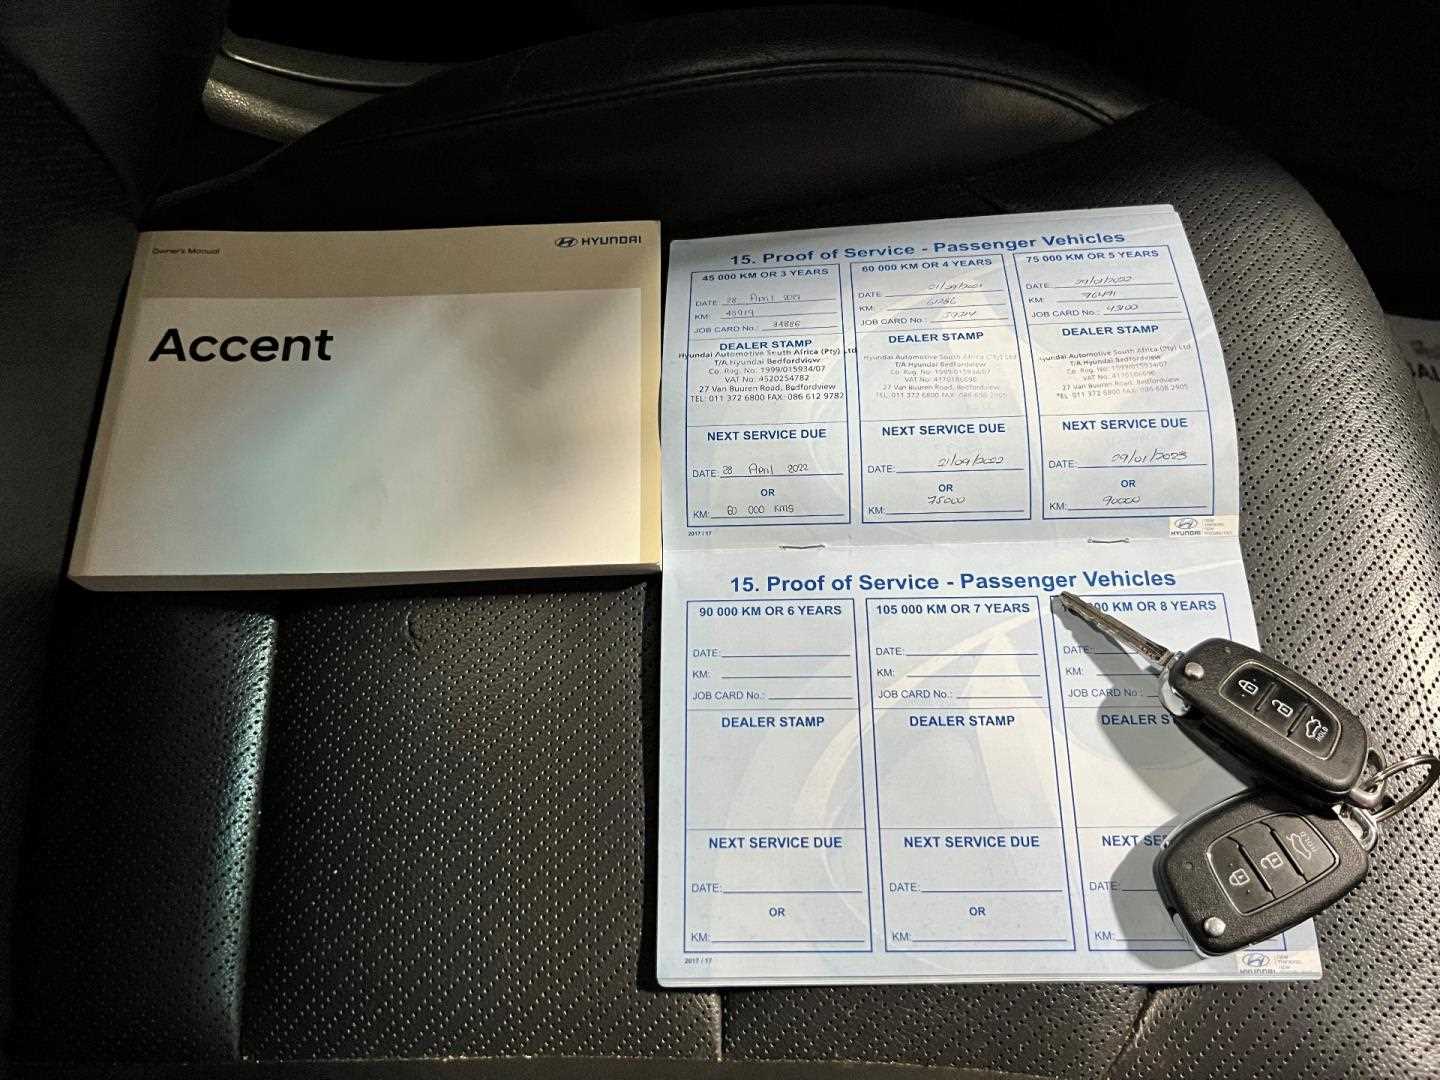 Owner's Manual
HYUNDAI
Accent
15. Proof of Service - Passenger Vehicles
45 000 KM OR 3 YEARS
DATE: 28 April 2021
KM: 45919
JOB CARD No.: 34886
DEALER STAMP
Hyundai Automotive South Africa (Pty) Ltd
T/A Hyundai Bedfordview
Co. Reg. No: 1999/015934/07
VAT No: 4520254782
27 Van Buuren Road, Bedfordview
TEL: 011 372 6800 FAX: 086 612 9782
NEXT SERVICE DUE
DATE: 28 April 2022
OR
KM: 60 000 KMS
60 000 KM OR 4 YEARS
DATE: 21/09/2021
KM: 61286
JOB CARD No.:
DEALER STAMP
Hyundai Automotive South Africa (Pty) Ltd
T/A Hyundai Bedfordview
Co. Reg. No: 1999/015934/07
VAT No: 4170186696
27 Van Buuren Road, Bedfordview
TEL: 011 372 6800 FAX: 086 608 2905
NEXT SERVICE DUE
DATE: 21/09/2022
OR
KM: 75000
75 000 KM OR 5 YEARS
DATE: 29/01/2022
KM: 76491
JOB CARD No.: 43100
DEALER STAMP
Hyundai Automotive South Africa (Pty) Ltd
T/A Hyundai Bedfordview
Co. Reg. No: 1999/015934/07
VAT No: 4170186696
27 Van Buuren Road, Bedfordview
TEL: 011 372 6800 FAX: 086 608 2905
NEXT SERVICE DUE
DATE: 29/01/2023
OR
KM: 90000
2017 / 17
HYUNDAI
15. Proof of Service - Passenger Vehicles
90 000 KM OR 6 YEARS
DATE:
KM:
JOB CARD No.:
DEALER STAMP
NEXT SERVICE DUE
DATE:
OR
KM:
105 000 KM OR 7 YEARS
DATE:
KM:
JOB CARD No.:
DEALER STAMP
NEXT SERVICE DUE
DATE:
OR
KM:
00 KM OR 8 YEARS
DATE:
KM:
JOB CARD No.:
DEALER ST
NEXT SE
DATE:
KM:
2017 / 17
HYUNDAI
HOLD